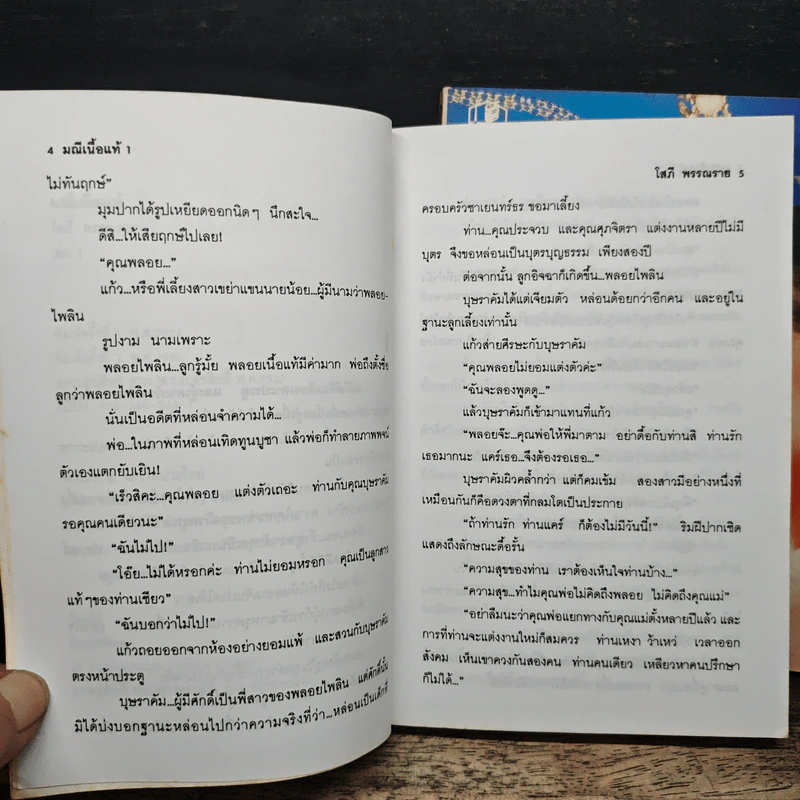 4 มณีเนื้อแท้ 1
ไม่ทันฤกษ์"
มุมปากได้รูปเหยียดออกนิดๆ นึกสะใจ...
ดีสิ...ให้เสียฤกษ์ไปเลย!
"คุณพลอย..."
แก้ว...หรือพี่เลี้ยงสาวเขย่าแขนนายน้อย...ผู้มีนามว่าพลอย-
ไพลิน
รูปงาม นามเพราะ
พลอยไพลิน...ลูกรู้มั้ย พลอยเนื้อแท้มีค่ามาก พ่อถึงตั้งชื่อ
ลูกว่าพลอยไพลิน
นั่นเป็นอดีตที่หล่อนจำความได้...
พ่อ...ในภาพที่หล่อนเทิดทูนบูชา แล้วพ่อก็ทำลายภาพพจน์
ตัวเองแตกยับเยิน!
"เร็วสิคะ...คุณพลอย แต่งตัวเถอะ ท่านกับคุณบุษราคัม
รอคุณคนเดียวนะ"
"ฉันไม่ไป!"
"โอ๊ย...ไม่ได้หรอกค่ะ ท่านไม่ยอมหรอก คุณเป็นลูกสาว
แท้ๆของท่านเชียว"
"ฉันบอกว่าไม่ไป!"
แก้วถอยออกจากห้องอย่างยอมแพ้ และสวนกับบุษราคัม
ตรงหน้าประตู
บุษราคัม...ผู้มีศักดิ์เป็นพี่สาวของพลอยไพลิน แต่ศักดิ์นั้น
มิได้บ่งบอกฐานะหล่อนไปกว่าความจริงที่ว่า...หล่อนเป็นเด็กที่
โสภี พรรณราย 5
ครอบครัวชาเยนทร์ธร ขอมาเลี้ยง
ท่าน...คุณประจวบ และคุณศุภจิตรา แต่งงานหลายปีไม่มี
บุตร จึงขอหล่อนเป็นบุตรบุญธรรม เพียงสองปี
ต่อจากนั้น ลูกอิจฉาก็เกิดขึ้น...พลอยไพลิน
บุษราคัมได้แต่เจียมตัว หล่อนด้อยกว่าอีกคน และอยู่ใน
ฐานะลูกเลี้ยงเท่านั้น
แก้วส่ายศีรษะกับบุษราคัม
"คุณพลอยไม่ยอมแต่งตัวค่ะ"
"ฉันจะลองพูดดู..."
แล้วบุษราคัมก็เข้ามาแทนที่แก้ว
"พลอยจ๊ะ...คุณพ่อให้พี่มาตาม อย่าดื้อกับท่านสิ ท่านรัก
เธอมากนะ แคร์เธอ...จึงต้องรอเธอ..."
บุษราคัมผิวคล้ำกว่า แต่ก็คมเข้ม สองสาวมีอย่างหนึ่งที่
เหมือนกันก็คือดวงตาที่กลมโตเป็นประกาย
"ถ้าท่านรัก ท่านแคร์ ก็ต้องไม่มีวันนี้!" ริมฝีปากเชิด
แสดงถึงลักษณะดื้อรั้น
"ความสุขของท่าน เราต้องเห็นใจท่านบ้าง..."
"ความสุข...ทำไมคุณพ่อไม่คิดถึงพลอย ไม่คิดถึงคุณแม่"
"อย่าลืมนะว่าคุณพ่อแยกทางกับคุณแม่ตั้งหลายปีแล้ว และ
การที่ท่านจะแต่งงานใหม่ก็สมควร ท่านเหงา ว้าเหว่ เวลาออก
สังคม เห็นเขาควงกันสองคน ท่านคนเดียว เหลียวหาคนปรึกษา
ก็ไม่ได้..."